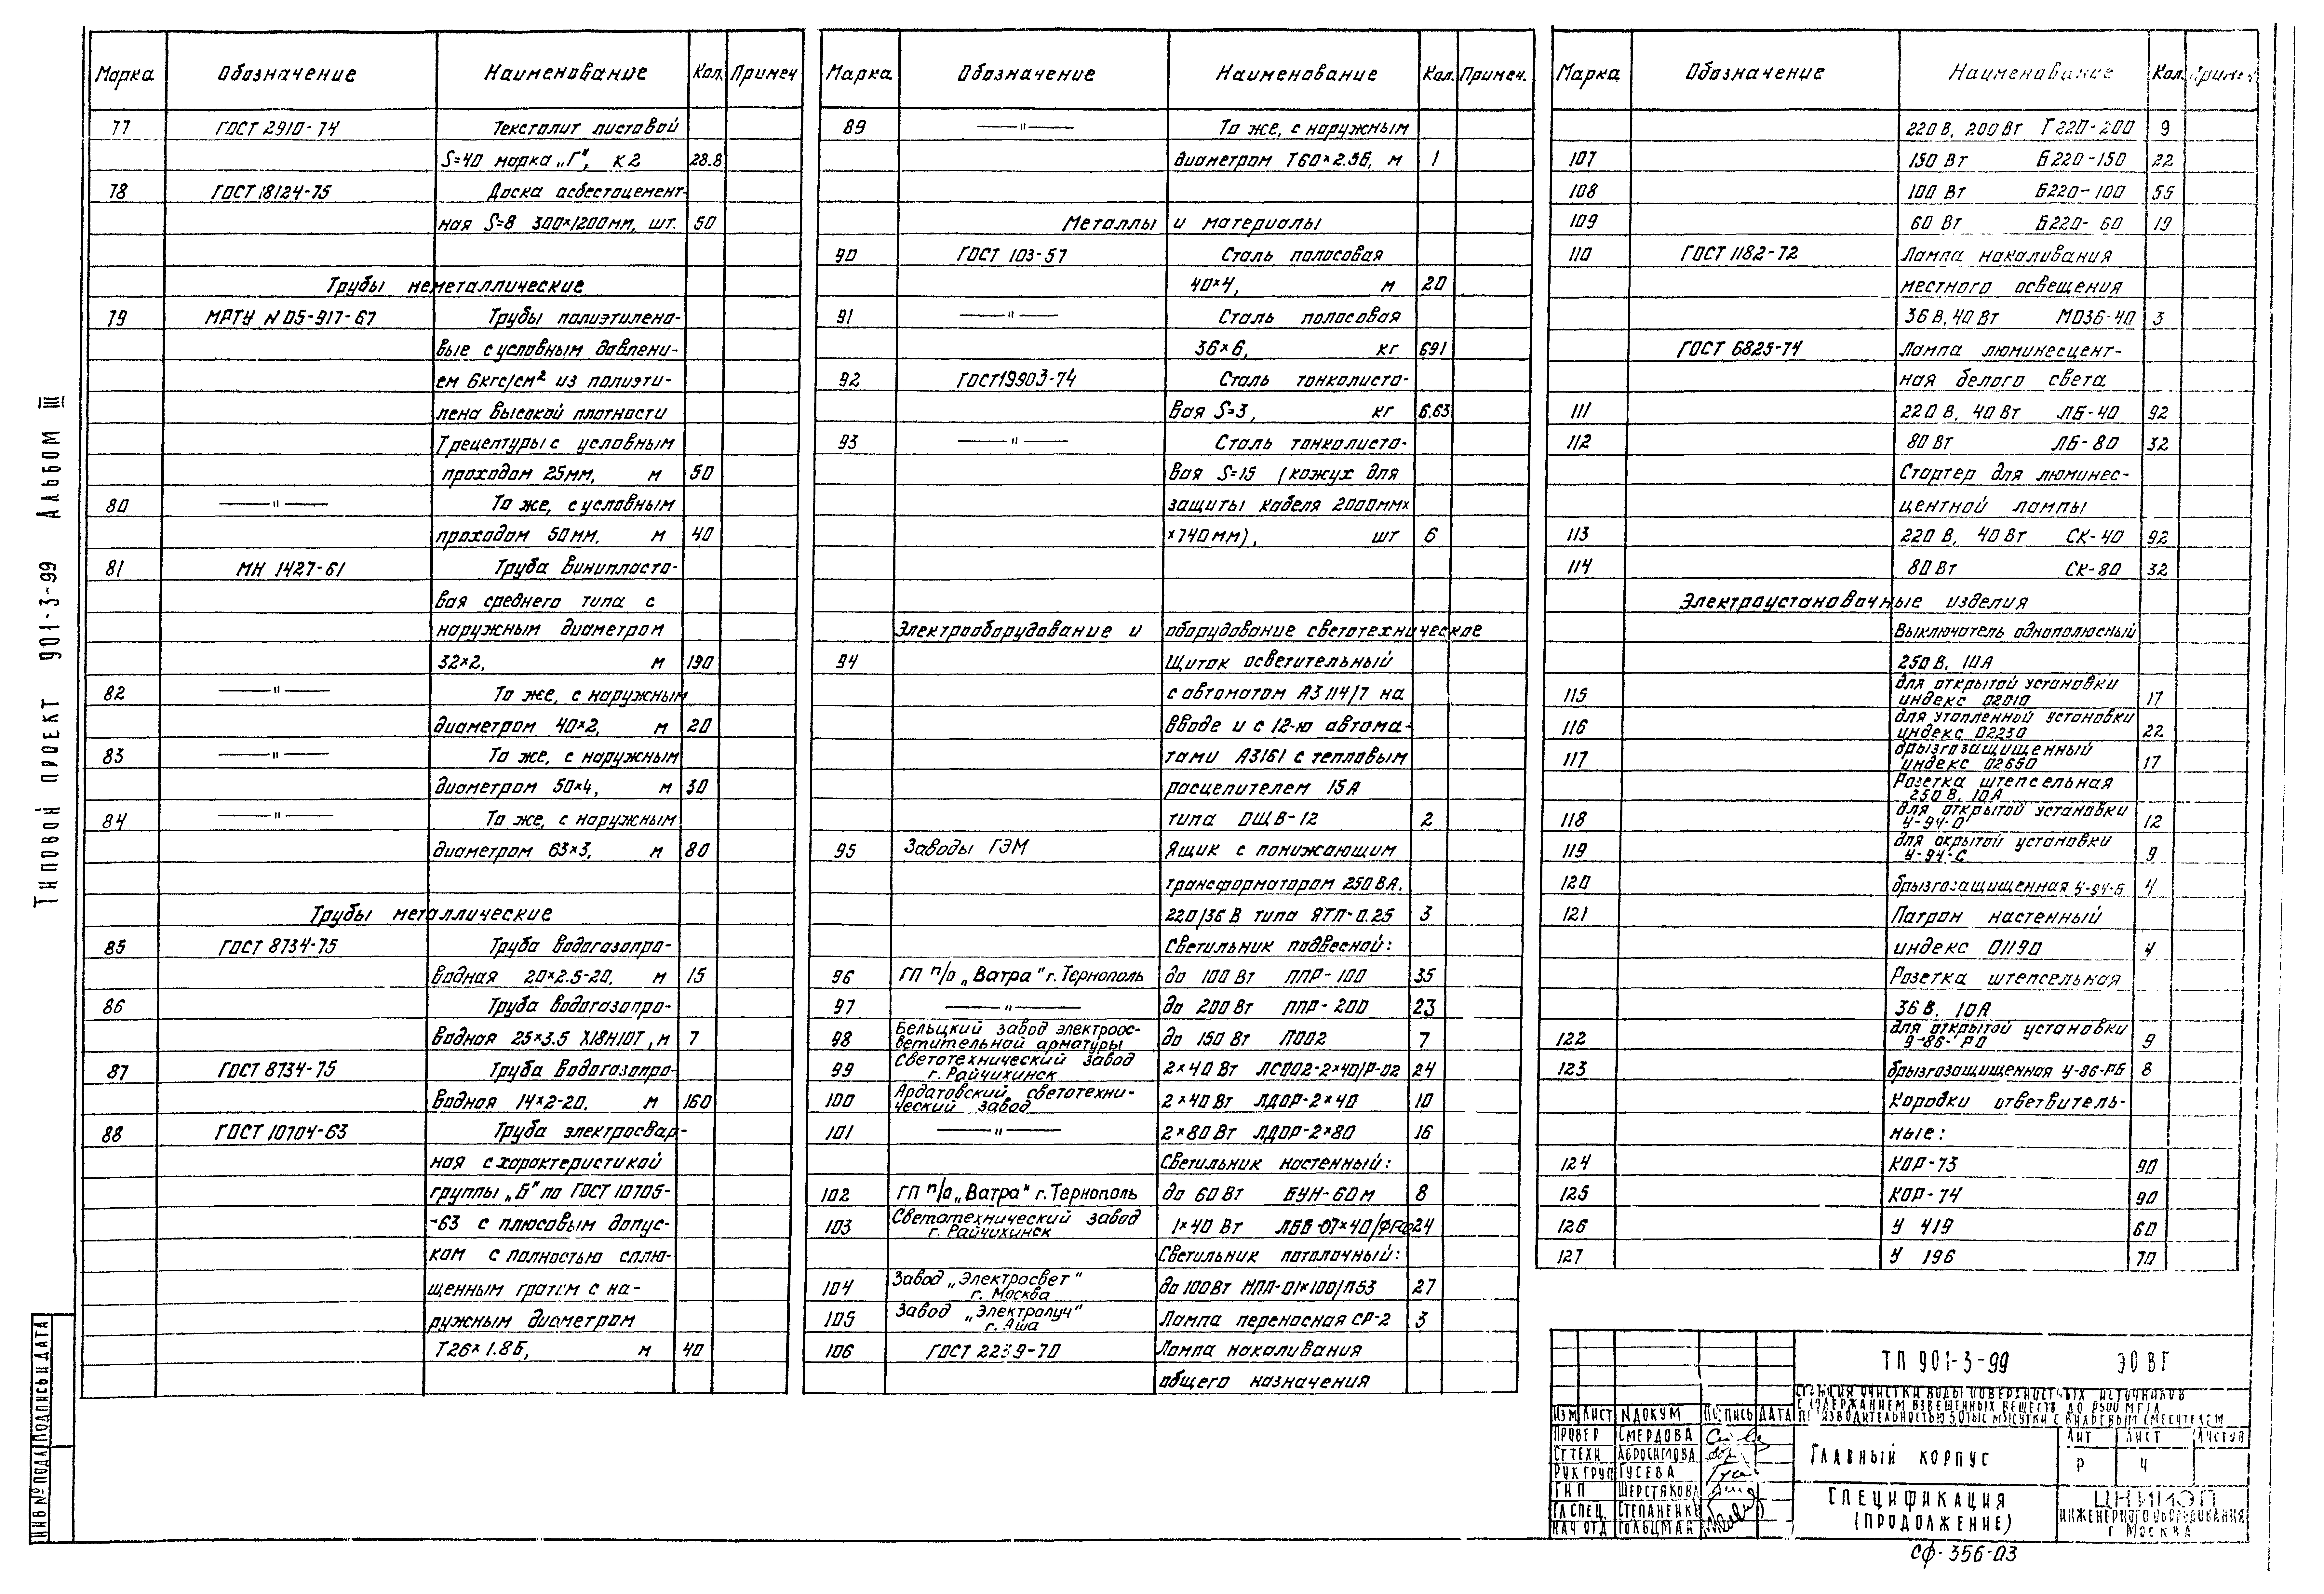 Типовой проект 901-3-99 Альбом III
Марка Обозначение Наименование Кол. Примеч
77 ГОСТ 2910-74 Текстолит листовой
S=40 марка „Г", к2 28.8
78 ГОСТ 18124-75 Доска асбестоцемент-
ная S=8 300×1200мм, шт. 50
Трубы неметаллические
79 МРТУ N 05-917-67 Трубы полиэтилено-
вые с условным давлени-
ем 6кгс/см² из полиэти-
лена высокой плотности
Т рецептуры с условным
проходом 25мм, м 50
80 —"— То же, с условным
проходом 50мм, м 40
81 МН 1427-61 Труба винипласто-
вая среднего типа с
наружным диаметром
32×2, м 190
82 —"— То же, с наружным
диаметром 40×2, м 20
83 —"— То же, с наружным
диаметром 50×4, м 30
84 —"— То же, с наружным
диаметром 63×3, м 80
Трубы металлические
85 ГОСТ 8734-75 Труба водогазопро-
водная 20×2.5-20, м 15
86 Труба водогазопро-
водная 25×3.5 Х18Н10Т, м 7
87 ГОСТ 8734-75 Труба водогазопро-
водная 14×2-20, м 160
88 ГОСТ 10704-63 Труба электросвар-
ная с характеристикой
группы „Б" по ГОСТ 10705-
-63 с плюсовым допус-
ком с полностью сплю-
щенным гратом с на-
ружным диаметром
Т26×1.8Б, м 40
Марка Обозначение Наименование Кол. Примеч.
89 —"— То же, с наружным
диаметром Т60×2.5Б, м 1
Металлы и материалы
90 ГОСТ 103-57 Сталь полосовая
40×4, м 20
91 —"— Сталь полосовая
36×6, кг 691
92 ГОСТ19903-74 Сталь тонколисто-
вая S=3, кг 6.63
93 —"— Сталь тонколисто-
вая S=15 (кожух для
защиты кабеля 2000мм×
×740мм), шт 6
Электрооборудование и оборудование светотехническое
94 Щиток осветительный
с автоматом А3114/7 на
вводе и с 12-ю автома-
тами А3161 с тепловым
расцепителем 15А
типа ОЩВ-12 2
95 Заводы ГЭМ Ящик с понижающим
трансформатором 250ВА,
220/36 В типа ЯТП-0.25 3
Светильник подвесной:
96 ГП п/о „Ватра" г. Тернополь до 100 Вт ППР-100 35
97 —"— до 200 Вт ППР-200 23
98 Бельцкий завод электроос-
ветительной арматуры до 150 Вт П002 7
99 Светотехнический завод
г. Райчихинск 2×40 Вт ЛСП02-2×40/Р-02 24
100 Ардатовский светотехни-
ческий завод 2×40 Вт ЛДОР-2×40 10
101 —"— 2×80 Вт ЛДОР-2×80 16
Светильник настенный:
102 ГП п/о „Ватра" г. Тернополь до 60 Вт БУН-60м 8
103 Светотехнический завод
г. Райчихинск 1×40 Вт 24
Светильник потолочный:
104 Завод „Электросвет"
г. Москва до 100Вт НПЛ-01×100/П53 27
105 Завод „Электролуч"
г. Яша Лампа переносная СР-2 3
106 ГОСТ 2239-70 Лампа накаливания
общего назначения
Марка Обозначение Наименование Кол. Примеч
220 В, 200 Вт Г220-200 9
107 150 Вт Б220-150 22
108 100 Вт Б220-100 55
109 60 Вт Б220-60 19
110 ГОСТ 1182-72 Лампа накаливания
местного освещения
36 В, 40 Вт МО36-40 3
ГОСТ 6825-74 Лампа люминесцент-
ная белого света
111 220 В, 40 Вт ЛБ-40 92
112 80 Вт ЛБ-80 32
Стартер для люминес-
центной лампы
113 220 В, 40 Вт СК-40 92
114 80 Вт СК-80 32
Электроустановочные изделия
Выключатель однополюсный
250 В, 10А
115 для открытой установки
индекс 02010 17
116 для утопленной установки
индекс 02230 22
117 брызгозащищенный
индекс 02650 17
Розетка штепсельная
250 В, 10А
118 для открытой установки
У-94-0 12
119 для окрытой установки
У-94-С 9
120 брызгозащищенная У-94-Б 4
121 Патрон настенный
индекс 01190 4
Розетка штепсельная
36 В, 10А
122 для открытой установки
У-86-РО 9
123 брызгозащищенная У-86-РБ 8
Коробки ответвитель-
ные:
124 КОР-73 90
125 КОР-74 90
126 У 419 60
127 У 196 70
ТП 901-3-99 ЭОВГ
Станция очистки воды поверхностных источников
с содержанием взвешенных веществ до 2500 мг/л
производительностью 5.0тыс м³/сутки с вихревым смесителем
Изм Лист N докум Подпись Дата
Провер Смердова
Ст техн Абросимова
Рук груп Гусева
ГИП Шерстякова
Гл спец. Степаненко
Нач отд Гольцман
Главный корпус
Лит Лист Листов
Р 4
Спецификация
(продолжение)
ЦНИИЭП
инженерного оборудования
г Москва
сф-356-03
Инв № подл Подпись и дата